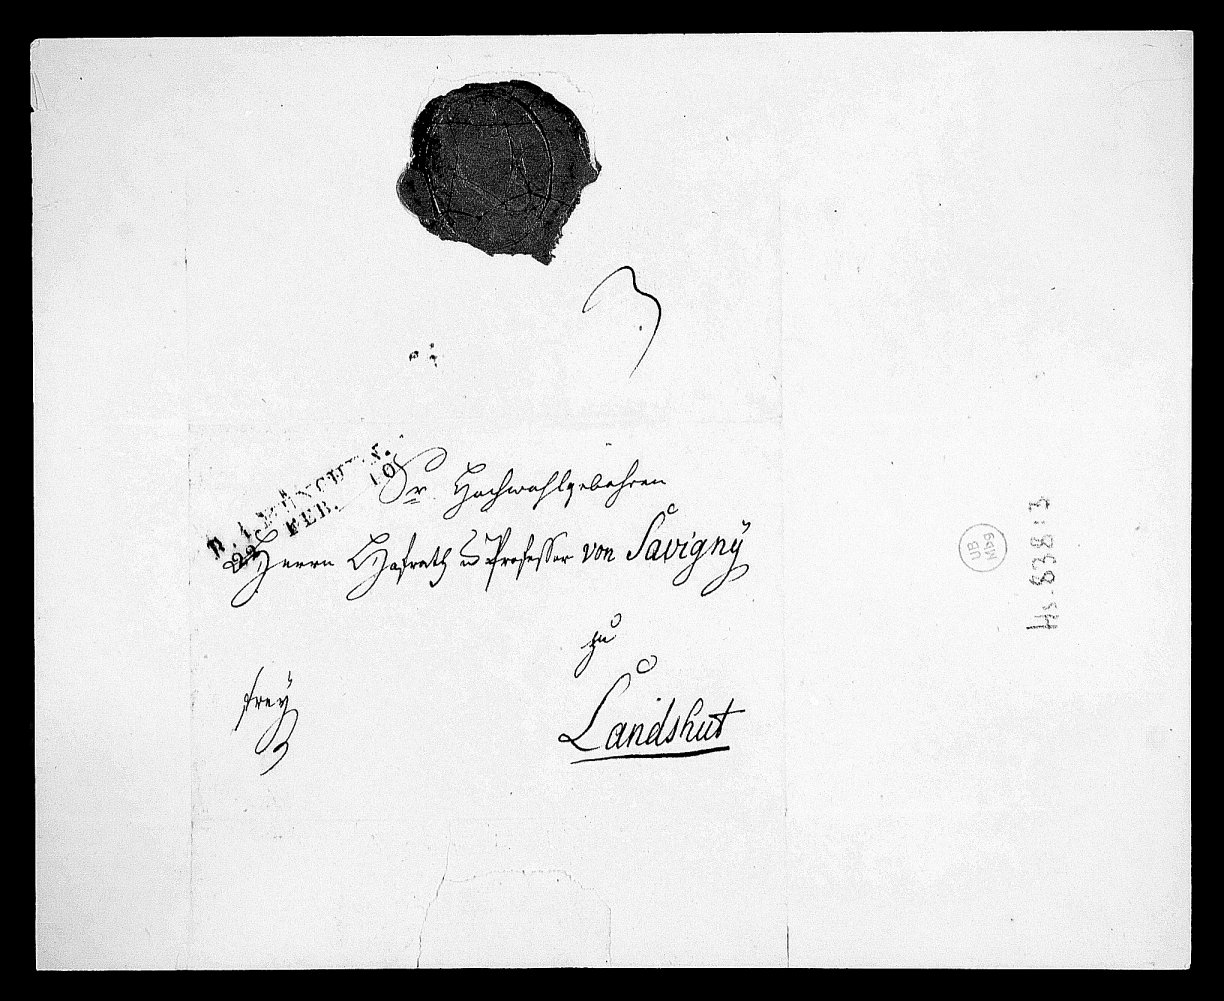 R. 4. MÜNCHEN.
22 FEB. 10
Sr. Hochwohlgebohren
Herrn Hofrath u Professor von Savigny
zu
Landshut
frey
UB
Mbg
Hs. 838:3